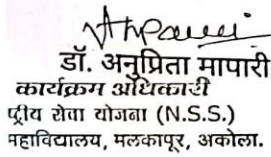 डॉ. अनुप्रिता मापारी
कार्यक्रम अधिकारी
ष्ट्रीय सेवा योजना (N.S.S.)
महाविद्यालय, मलकापूर, अकोला.